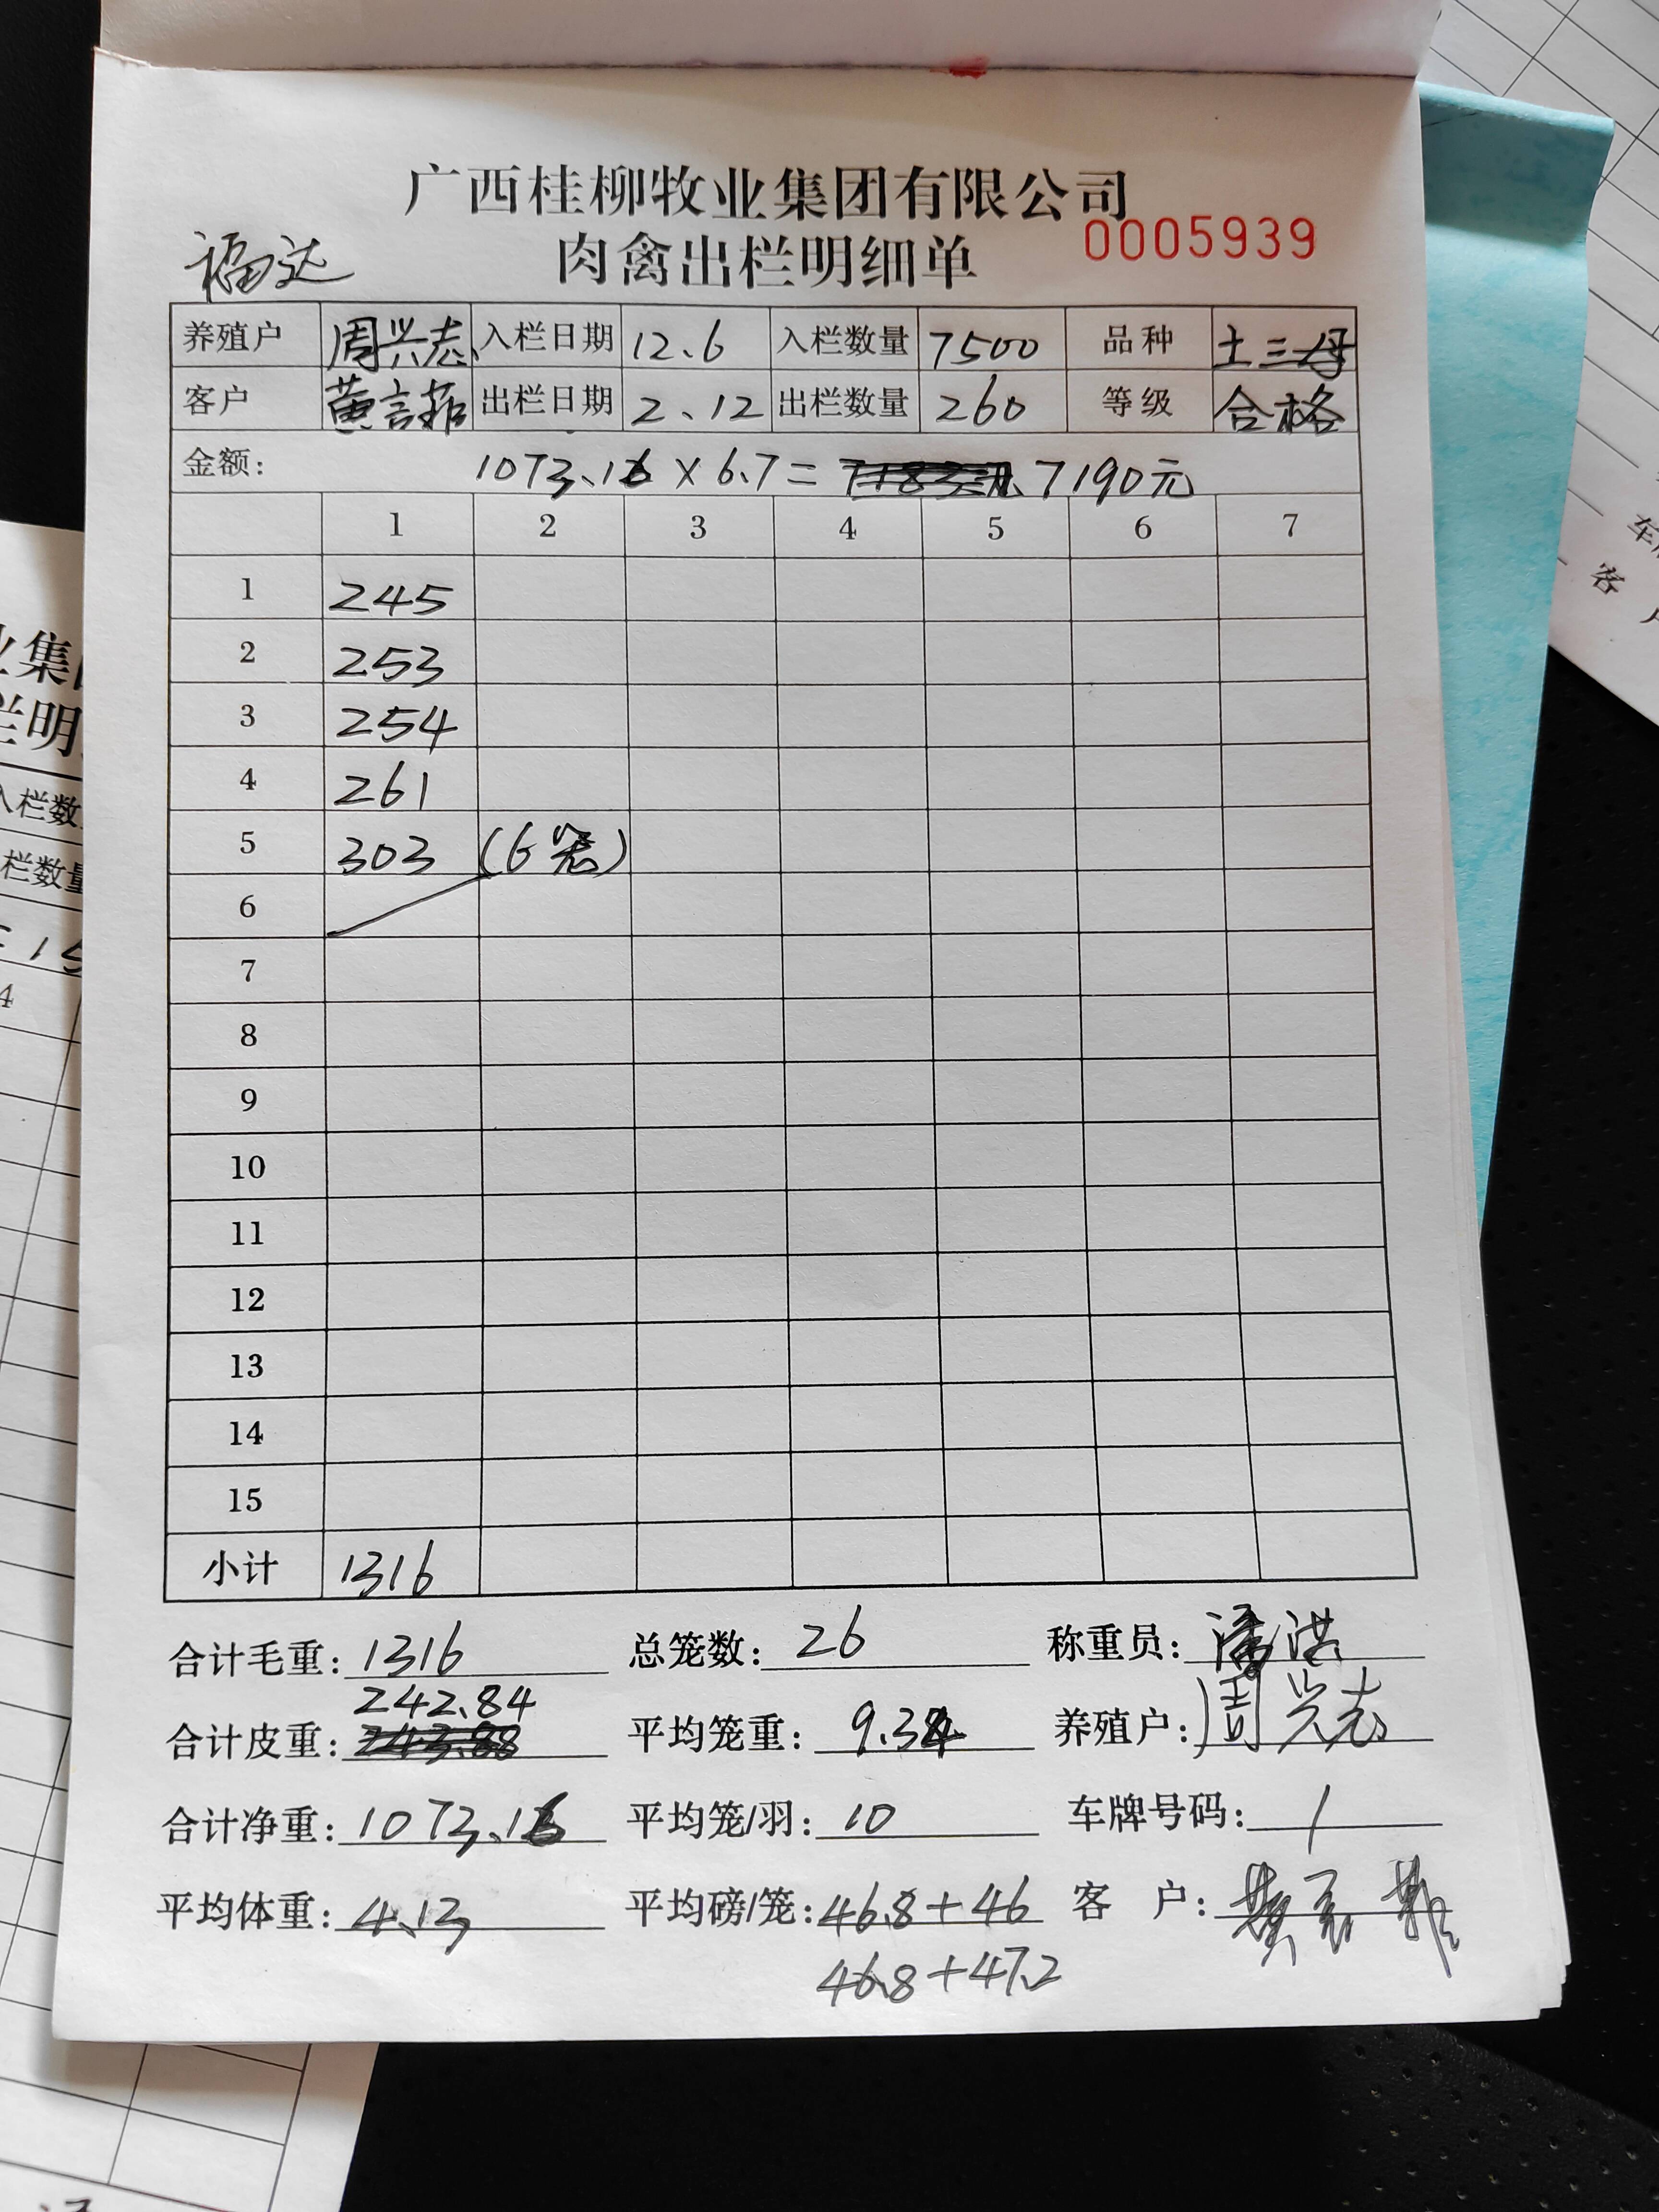 广西桂柳牧业集团有限公司
福达 肉禽出栏明细单 0005939
养殖户 周兴志 入栏日期 12.6 入栏数量 7500 品种 土三母
客户 黄 出栏日期 2.12 出栏数量 260 等级 合格
金额: 1073.16 × 6.7 = 7190元
1 2 3 4 5 6 7
1 245
2 253
3 254
4 261
5 303 (6笼)
6
7
8
9
10
11
12
13
14
15
小计 1316
合计毛重: 1316 总笼数: 26 称重员: 潘洪
242.84
合计皮重: 平均笼重: 9.34 养殖户: 周兴志
合计净重: 1073.16 平均笼/羽: 10 车牌号码: /
平均体重: 4.13 平均磅/笼: 46.8+46 客 户: 黄
46.8+47.2
业集
栏明
入栏数
栏数量
4
车
客 户